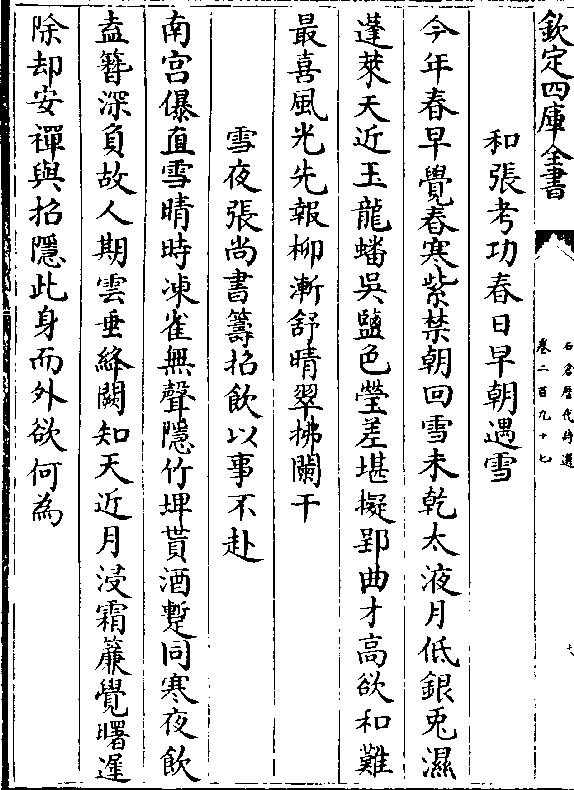 欽定四庫全書
石倉歴代詩選
卷二百九十七
七
和張考功春日早朝遇雪
今年春早覺春寒紫禁朝回雪未乾太液月低銀兎濕
蓬萊天近玉龍蟠吳鹽色瑩差堪擬郢曲才高欲和難
最喜風光先報柳漸舒晴翠拂闌干
雪夜張尚書籌招飲以事不赴
南宮儤直雪晴時凍雀無聲隱竹埤貰酒蹔同寒夜飲
盍簪深負故人期雲垂絳闕知天近月浸霜簾覺曙遲
除却安禪與招隱此身而外欲何為